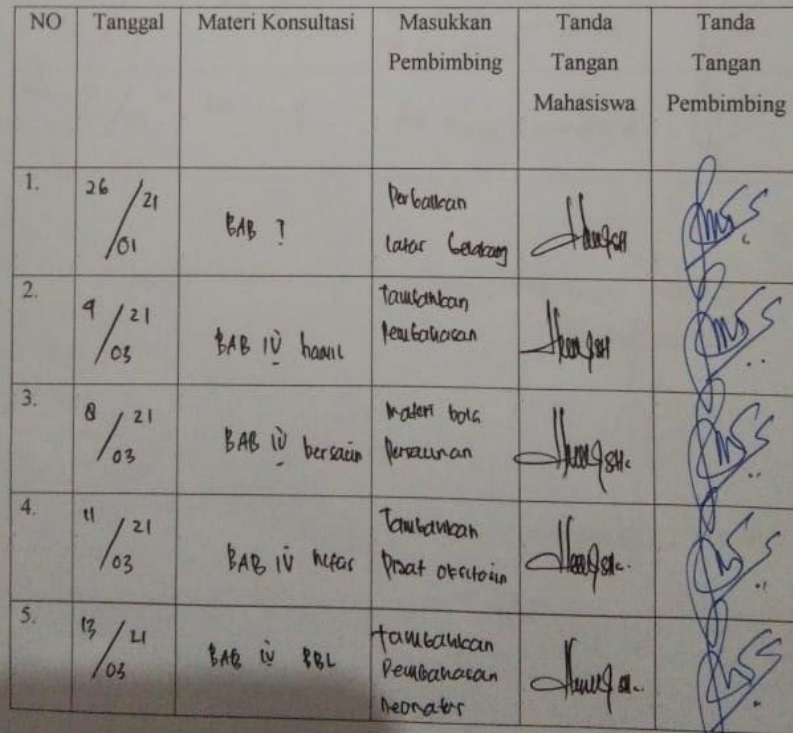 NO Tanggal Materi Konsultasi Masukkan Tanda Tanda
Pembimbing Tangan Tangan
Mahasiswa Pembimbing
1. 26/01 21 BAB I Perbaikan
latar belakang
2. 21/03 BAB IV hamil tambahkan
Pembahasan
3. 8/03 21 BAB IV bersalin materi
Persalinan
4. 11/03 21 BAB IV nifas Tambahkan
oksitosin
5. 13/03 21 BAB IV BBL tambahkan
Pembahasan
neonatus